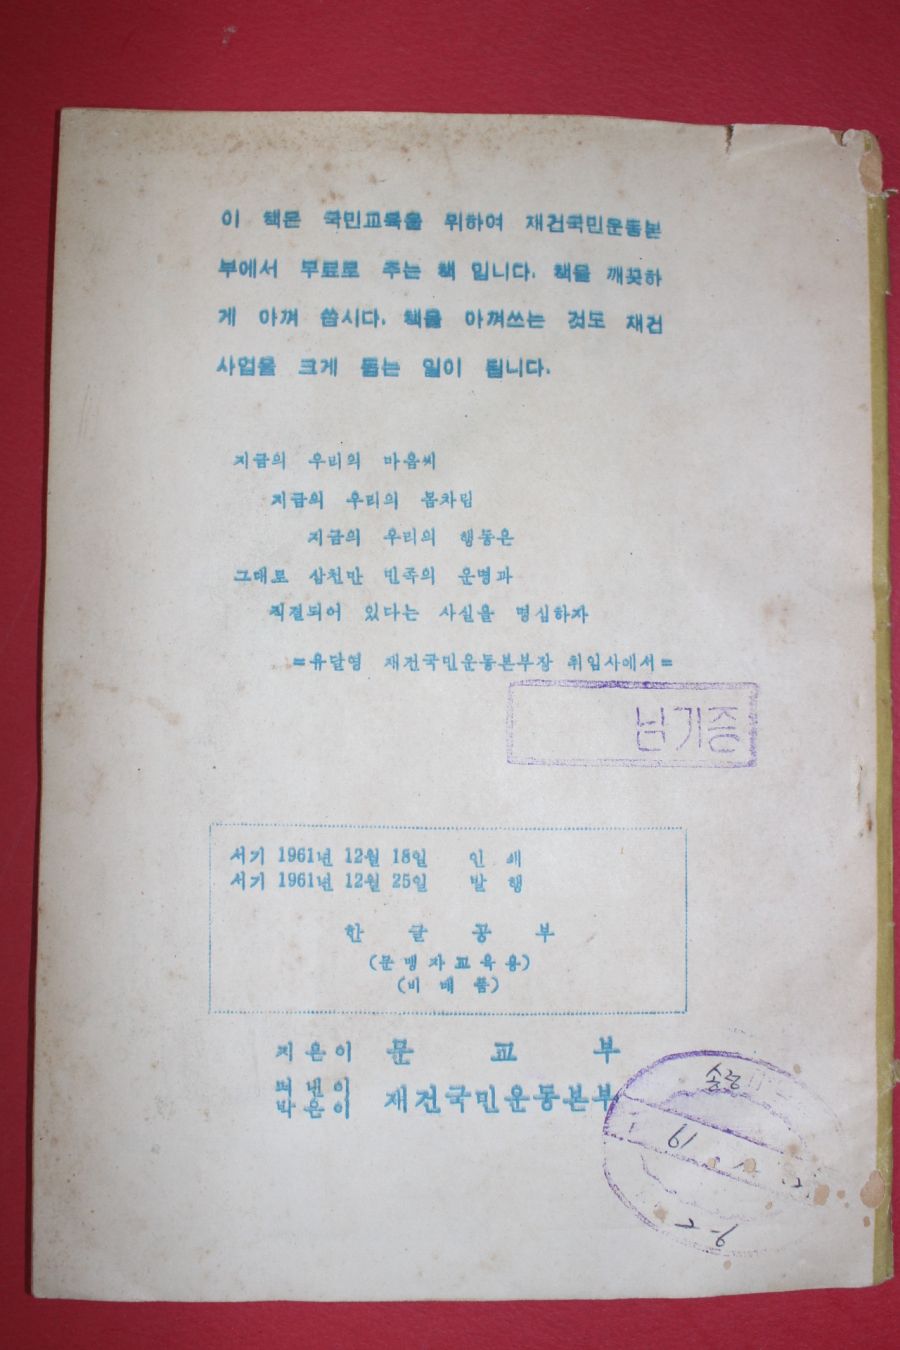 이 책은 국민교육을 위하여 재건국민운동본
부에서 무료로 주는 책 입니다. 책을 깨끗하
게 아껴 씁시다. 책을 아껴쓰는 것도 재건
사업을 크게 돕는 일이 됩니다.
지금의 우리의 마음씨
지금의 우리의 몸차림
지금의 우리의 행동은
그대로 삼천만 민족의 운명과
직결되어 있다는 사실을 명심하자
=유달영 재건국민운동본부장 취임사에서=
남기증
서기 1961년 12월 18일 인 쇄
서기 1961년 12월 25일 발 행
한 글 공 부
(문 맹 자 교 육 용)
(비 매 품)
지 은 이 문 교 부
펴 낸 이
박 은 이 재건국민운동본부
61
2-6